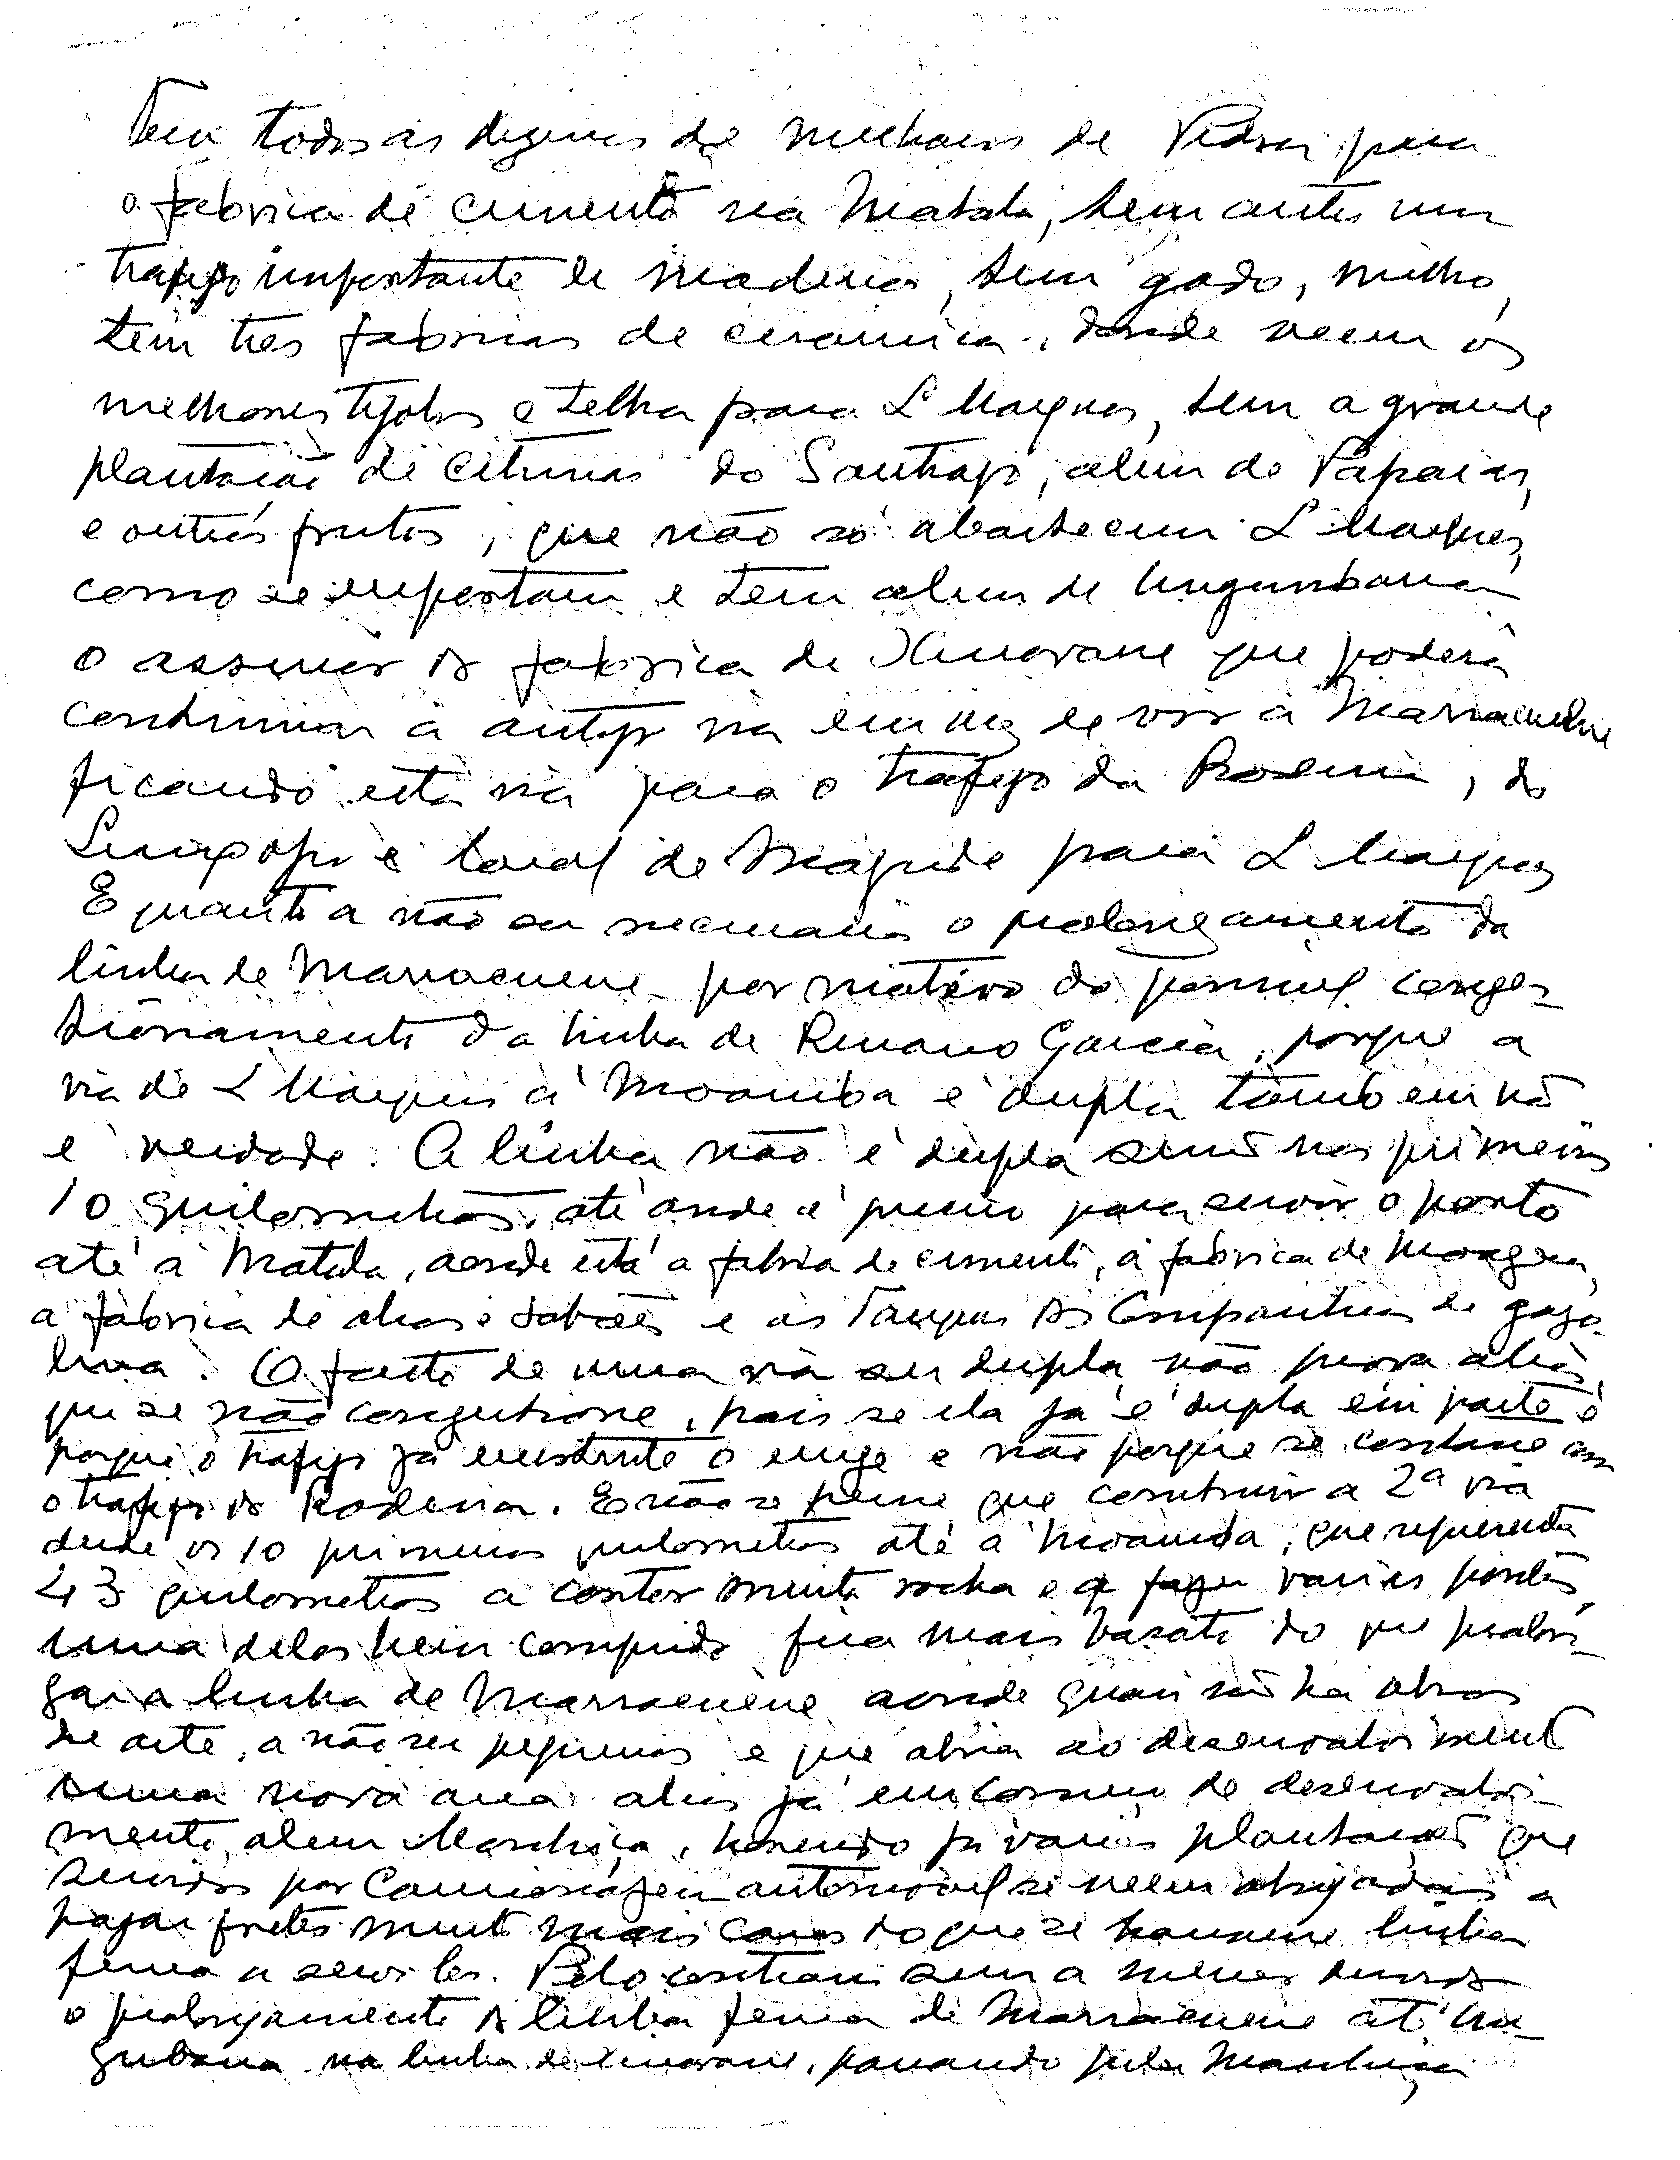 Tem todas as de de Pedra para
a fabrica de cimento na Matola, tem antes um
trafego importante de madeira, tem gado, milho,
tem tres fabricas de ceramica, donde veem os
melhores tijolos e telha para L Marques, tem a grande
plantação de citrinas do Santiago, alem de Papaias,
e outros frutos, que não só abastecem L Marques,
como se exportam e tem alem de
o assucar da fabrica de Xinavane que poderá
continuar a antiga via em vez de vir a Marracuene
ficando esta via para o trafego da Rodesia, do
Limpopo e local de Magude para L Marques
E quanto a não ser necessario o prolongamento da
linha de Marracuene por motivo do possivel conges-
tionamento da linha de Ressano Garcia, porque a
via de L Marques à Moamba é dupla tambem não
é verdade. A linha não é dupla senão nos primeiros
10 quilometros, até onde é preciso para servir o porto
até à Matola, aonde está a fabrica de cimento, a fabrica de Moagem,
a fabrica de oleos e sabões e os Tanques das Companhias de gazo-
lina. O facto de uma via ser dupla não prova aliás
que se não congestione, pois se ela já é dupla em parte é
porque o trafego já existente o exige e não porque se contasse com
o trafego da Rodesia. E não se pense que construir a 2ª via
desde os 10 primeiros quilometros até à Moamba, que representa
43 quilometros a cortar muita rocha e a fazer varias pontes,
uma delas bem comprida fica mais barato do que prolon-
gar a linha de Marracuene aonde quasi não ha obras
de arte, a não ser pequenas e que abria ao desenvolvimento
uma nova area alias já em começo de desenvolvi-
mento, alem Manhiça, havendo já varias plantações que
servidas por Camionagem automovel se veem obrigadas a
pagar fretes muito mais caros do que se houvesse linha
ferrea a servi-los. Pelo contrario sem a menor duvida
o prolongamento da linha ferrea de Marracuene até
na linha de Xinavane, passando pela Manhiça,